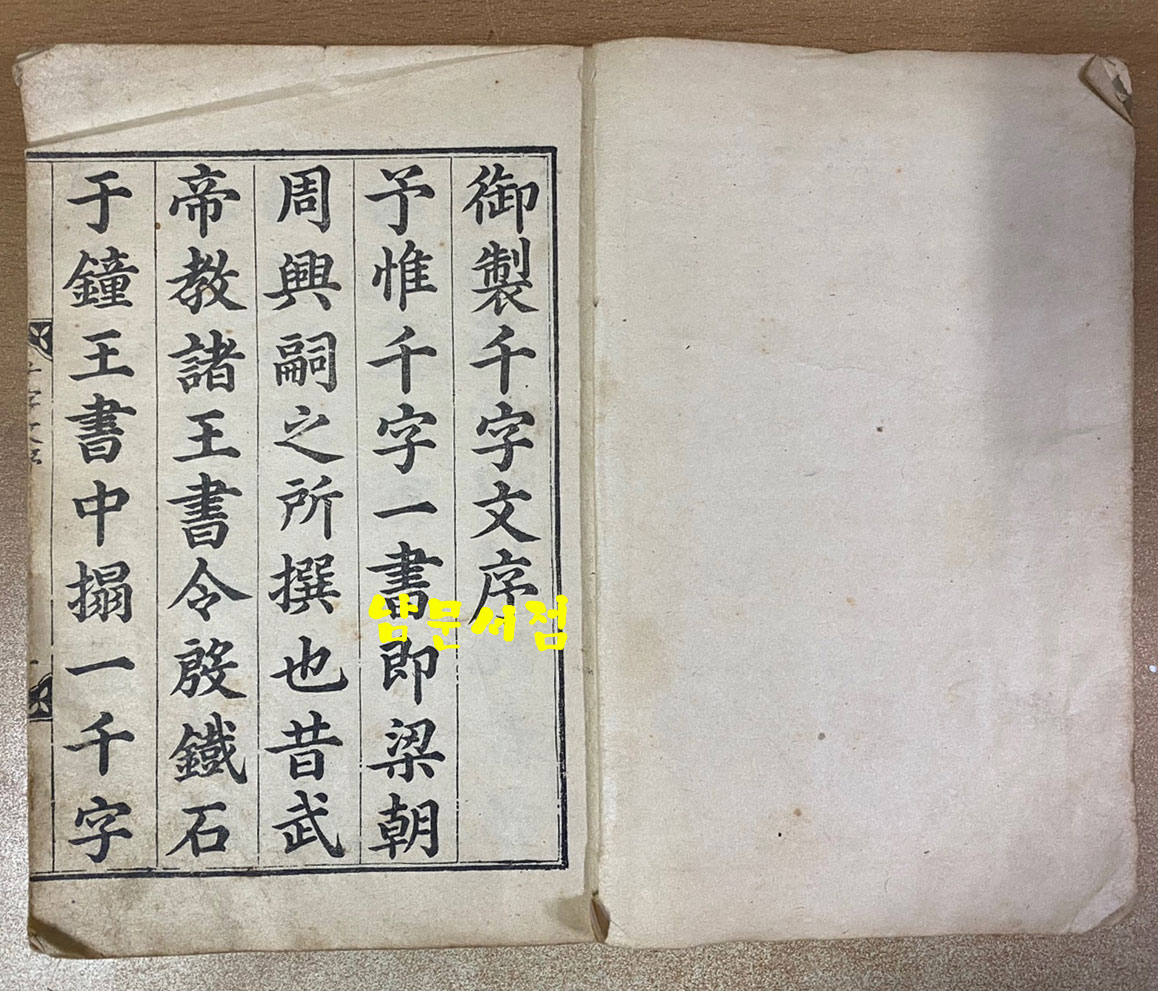 御製千字文序
予惟千字一書即梁朝
周興嗣之所撰也昔武
帝教諸王書令殷鐵石
于鐘王書中搨一千字
千字文序
남문서점